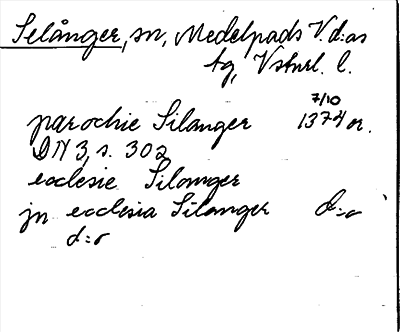 Selånger, sn, Medelpads V. d:as
tg, Vstnrl. l.
parochie Silanger 7/10 1374 or.
DN 3, s. 302
ecclesie Silanger
jn ecclesia Silanger d:o
d:o